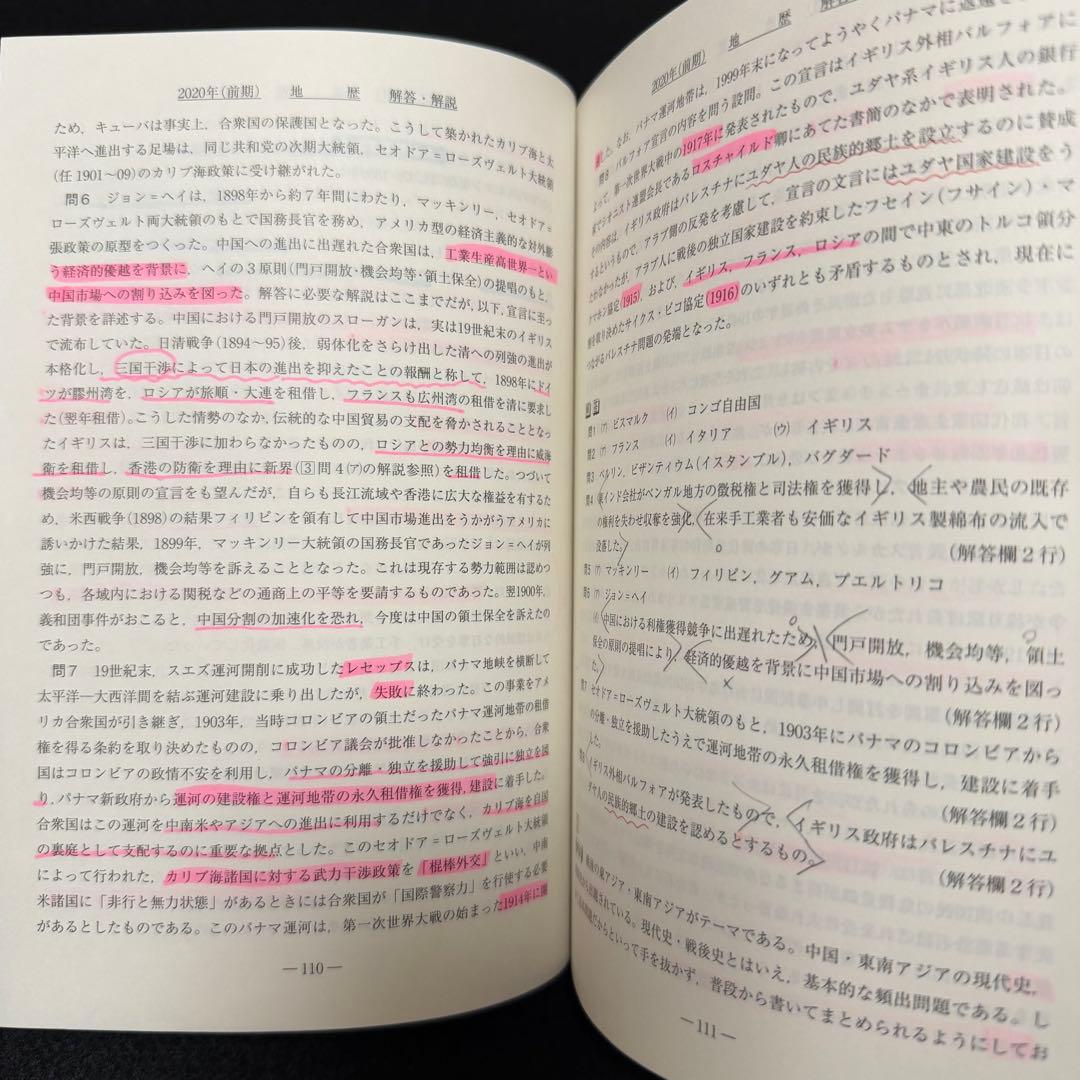 2020年(前期) 地 歴 解答・解説
ため，キューバは事実上，合衆国の保護国となった。こうして築かれたカリブ海と太
平洋へ進出する足場は，同じ共和党の次期大統領，セオドア＝ローズヴェルト大統領
(任 1901~09)のカリブ海政策に受け継がれた。
問6 ジョン＝ヘイは，1898年から約7年間にわたり，マッキンリー，セオドア＝
ローズヴェルト両大統領のもとで国務長官を務め，アメリカ型の経済主義的な対外膨
張政策の原型をつくった。中国への進出に出遅れた合衆国は，工業生産高世界一とい
う経済的優越を背景に，ヘイの3原則(門戸開放・機会均等・領土保全)の提唱のもと，
中国市場への割り込みを図った。解答に必要な解説はここまでだが，以下，宣言に至っ
た背景を詳述する。中国における門戸開放のスローガンは，実は19世紀末のイギリス
で流布していた。日清戦争(1894～95)後，弱体化をさらけ出した清への列強の進出が
本格化し，三国干渉によって日本の進出を抑えたことの報酬と称して，1898年にドイ
ツが膠州湾を，ロシアが旅順・大連を租借し，フランスも広州湾の租借を清に要求し
た(翌年租借)。こうした情勢のなか，伝統的な中国貿易の支配を脅かされることとなっ
たイギリスは，三国干渉に加わらなかったものの，ロシアとの勢力均衡を理由に威海
衛を租借し，香港の防衛を理由に新界(③問4(ア)の解説参照)を租借した。つづいて
機会均等の原則の宣言をも望んだが，自らも長江流域や香港に広大な権益を有するた
め，米西戦争(1898)の結果フィリピンを領有して中国市場進出をうかがうアメリカに
誘いかけた結果，1899年，マッキンリー大統領の国務長官であったジョン＝ヘイが列
強に，門戸開放，機会均等を訴えることとなった。これは現存する勢力範囲は認めつ
つも，各域内における関税などの通商上の平等を要請するものであった。翌1900年，
義和団事件がおこると，中国分割の加速化を恐れ，今度は中国の領土保全を訴えたの
であった。
問7 19世紀末，スエズ運河開削に成功したレセップスは，パナマ地峡を横断して
太平洋―大西洋間を結ぶ運河建設に乗り出したが，失敗に終わった。この事業をアメ
リカ合衆国が引き継ぎ，1903年，当時コロンビアの領土だったパナマ運河地帯の租借
権を得る条約を取り決めたものの，コロンビア議会が批准しなかったことから，合衆
国はコロンビアの政情不安を利用し，パナマの分離・独立を援助して強引に独立を図
り，パナマ新政府から運河の建設権と運河地帯の永久租借権を獲得，建設に着手した。
合衆国はこの運河を中南米やアジアへの進出に利用するだけでなく，カリブ海を自国
の裏庭として支配するのに重要な拠点とした。このセオドア＝ローズヴェルト大統領
によって行われた，カリブ海諸国に対する武力干渉政策を「棍棒外交」といい，中南
米諸国に「非行と無力状態」があるときには合衆国が「国際警察力」を行使する必要
があるとしたものである。このパナマ運河は，第一次世界大戦の始まった1914年に開
―110―
2020年(前期) 地 歴
した。なお，パナマ運河地帯は，1999年末になってようやくパナマに
問8 バルフォア宣言の内容を問う設問。この宣言はイギリス外相バルフォアに
よって，第一次世界大戦中の1917年に発表されたもので，ユダヤ系イギリス人の銀行
家でシオニスト連盟会長であるロスチャイルド卿にあてた書簡のなかで表明された。
その内容は，イギリス政府はパレスチナにユダヤ人の民族的郷土を設立するのに賛成
するというもので，アラブ側の反発を考慮して，宣言の文言にはユダヤ国家建設をう
たわなかったが，アラブ人に戦後の独立国家建設を約束したフセイン(フサイン)・マ
クマホン協定(1915)，および，イギリス，フランス，ロシアの間で中東のトルコ領分
割を取り決めたサイクス・ピコ協定(1916)のいずれとも矛盾するものとされ，現在に
つながるパレスチナ問題の発端となった。
解答
問1 (ア) ビスマルク (イ) コンゴ自由国
問2 (ア) フランス (イ) イタリア (ウ) イギリス
問3 ベルリン，ビザンティウム(イスタンブル)，バグダード
問4 東インド会社がベンガル地方の徴税権と司法権を獲得し，地主や農民の既存
の権利を失わせ収奪を強化，在来手工業者も安価なイギリス製綿布の流入で
没落した。 (解答欄2行)
問5 (ア) マッキンリー (イ) フィリピン，グアム，プエルトリコ
問6 (ア) ジョン＝ヘイ
(イ) 中国における利権獲得競争に出遅れたため，門戸開放，機会均等，領土
保全の原則の提唱により，経済的優越を背景に中国市場への割り込みを図っ
た。 (解答欄2行)
問7 セオドア＝ローズヴェルト大統領のもと，1903年にパナマのコロンビアから
の分離・独立を援助したうえで運河地帯の永久租借権を獲得し，建設に着手
した。 (解答欄2行)
問8 イギリス外相バルフォアが発表したもので，イギリス政府はパレスチナにユ
ダヤ人の民族的郷土の建設を認めるとするもの。 (解答欄2行)
戦後の東アジア・東南アジアがテーマである。中国・東南アジアの現代史，
出題されている。現代史・戦後史とはいえ，基本的な頻出問題である。し
だからといって手を抜かず，普段から書いてまとめられるようにしてお
―111―